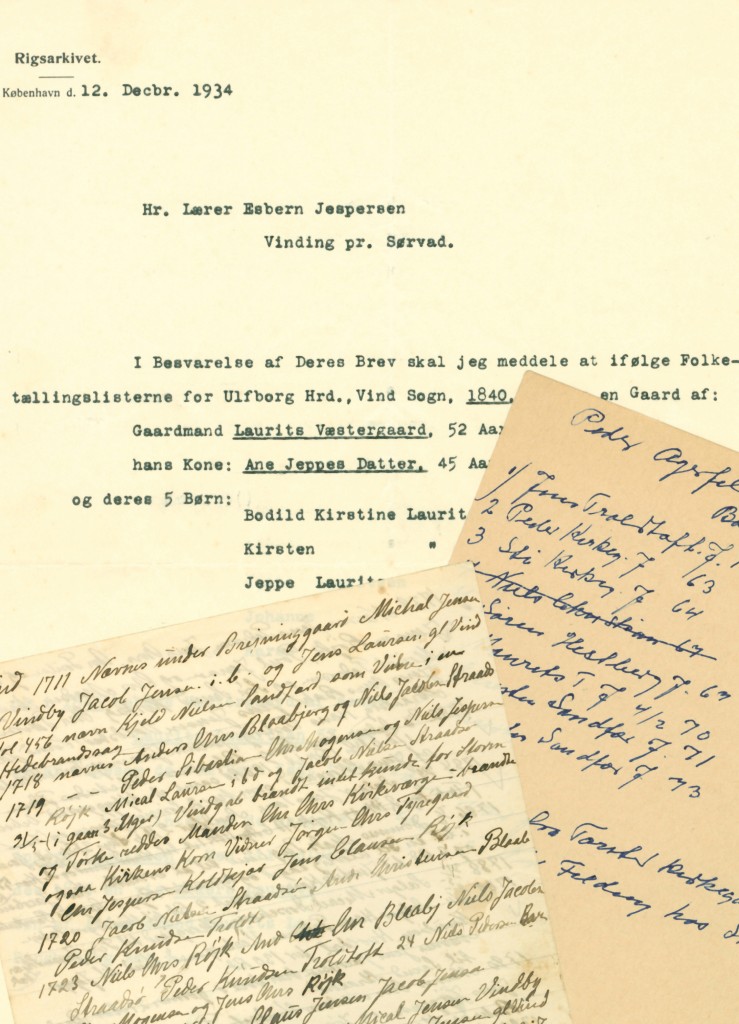 Rigsarkivet.
København d. 12. Decbr. 1934
Hr. Lærer Esbern Jespersen
Vinding pr. Sørvad.
I Besvarelse af Deres Brev skal jeg meddele at ifølge Folke-
tællingslisterne for Ulfborg Hrd., Vind Sogn, 1840, en Gaard af:
Gaardmand Laurits Væstergaard, 52 Aar
hans Kone: Ane Jeppes Datter, 45 Aa
og deres 5 Børn:
Bodild Kirstine Laurit
Kirsten "
Jeppe Laurits
Peder Agerfel
1) Jens Troldtoft f.
2 Peder Kirkeg. f 63
3 Kirkeg. f 64
Niels Christian 67
Søren Hestberg f. 69
Laurits T f 4/2 70
Sandfær f. 71
Sandfær f 73
Torsted Kirkeg
Felding hos
1711 Navnes under Brejninggaard Michal Jensen
Vindby Jacob Jensen i.b. og Jens Laursen gl Vind
456 navn Kjeld Nielsen Sandfærd som Viber i en
Hedebrandssag
1718 navnes Anders Chrs Blaabjerg og Niels Jacobsen Straads
1719 - - Peder Sibastian Chr Mogensen og Niels Jespersen
Røjk Mical Laursen i bd og Jacob Nielsen Straadsø
(i gaar 3 Uger) Vindgab brandt intet kunde for Storm
og Tørke reddes Manden Chr Chrs Kirkeværge - brandte
ogsaa Kirkens Korn Vidner Jørgen Chrs Tyregaard
Jespersen Koldkjær Jens Clausen Røjk
1720 Jacob Nielsen Straadsø And Christensen Blaab
Peder Knudsen Troldt
1723 Niels Chrs Røjk And Chr Blaabj Niels Jacobsen
Straadsø Peder Knudsen Troldtoft 24 Niels Pedersen
Mogensen og Jens Chrs Røjk
Claus Jensen Jacob Jensen
Mical Jensen Vindby